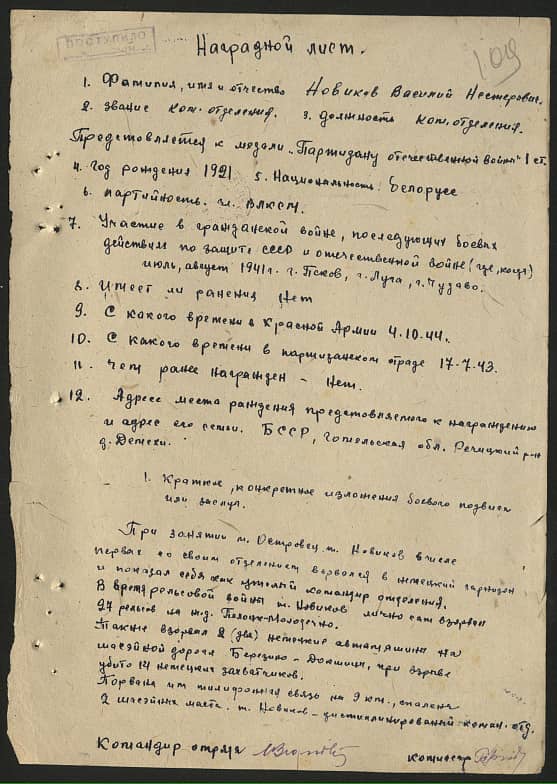 ПОСТУПИЛО
109
Наградной лист.
1. Фамилия, имя и отчество Новиков Василий Нестерович.
2. Звание ком. отделения. 3. должность ком. отделения.
Предстовляется к медали „Партизану отечественной войны" I ст.
4. Год рождения 1921 5. Национальность: Белорусс
6. партийность. чл. ВЛКСМ.
7. Участие в гражданской войне, последующих боевых
действиям по защите СССР и отечественной войне (где, когда)
июль, август 1941г. г. Псков, г. Луга, г. Чудово.
8. Имеет ли ранения Нет
9. С какого времени в Красной Армии 4.10.44.
10. С какого времени в партизанском отряде 17-7.43.
11. Чем ранее награжден - Нет.
12. Адресс места раждения предстовляемого к награждению
и адрес его семьи. БССР, Гомельская обл. Речицкий р-н
д.
1. Краткое, конкретное изложения боевого подвига
или заслуг.
При занятии м. Островец т. Новиков в числе
первых со своим отделением ворвался в немецкий гарнизон
и показал себя как умелый командир отделения.
В время рельсовой войны т. Новиков лично сам взорвал
27 рельсов на ж.д. Полоцк-Молодечно.
Также взорвал 2 (два) немецкие автомашины на
шасейной дороге Березино - Докшицы, при взрыве
убито 14 немецких захватчиков.
Порвана им телефонная связь на 9 км., спалена
2 шасейных маста. т. Новиков - дисциплинированный коман. отд.
Командир отряда
комиссар